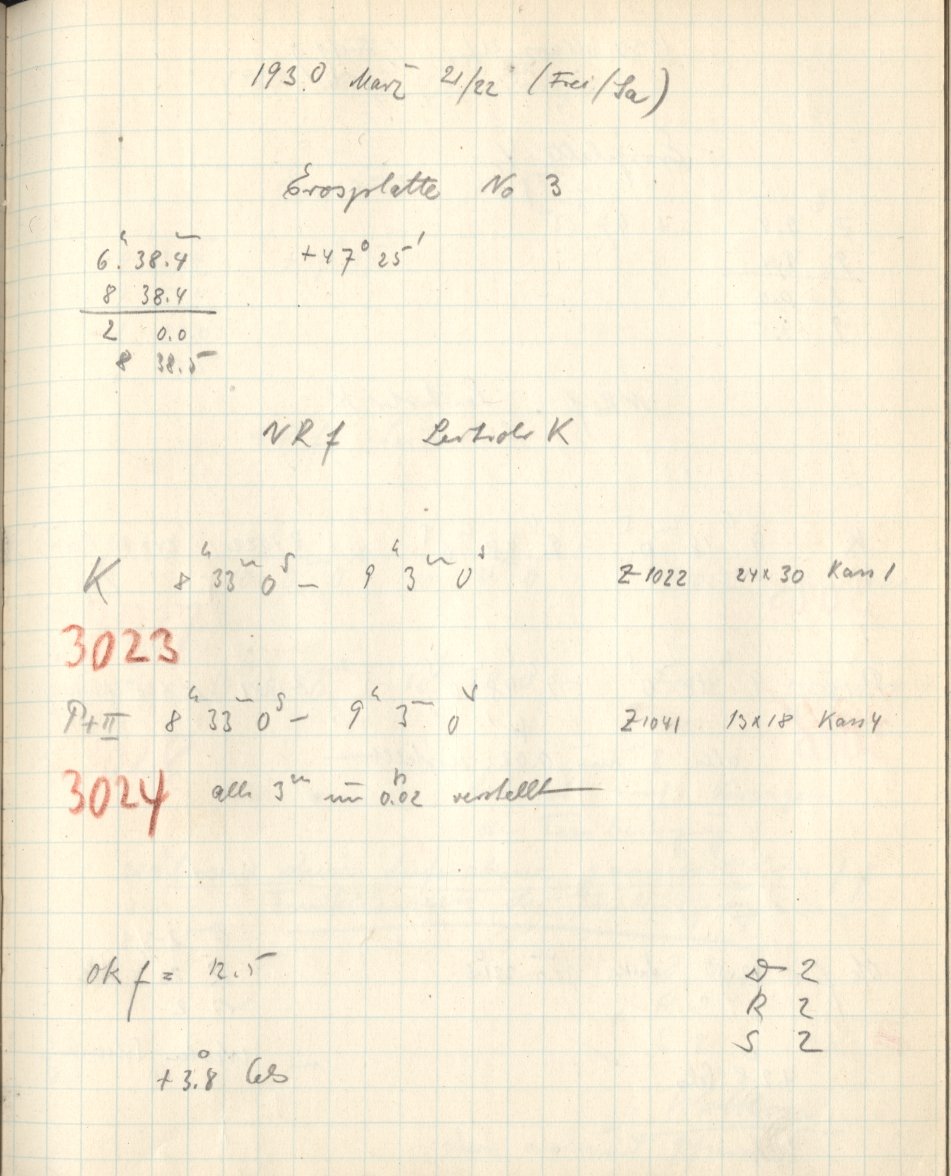 1930 März 21/22 (Frei/Sa)
Erosplatte No 3
6.ʰ 38.4ᵐ +47° 25'
8 38.4
2 0.0
8 38.5
NRf Leitrohr K
K 8ʰ 33ᵐ 0ˢ – 9ʰ 3ᵐ 0ˢ Z 1022 24x30 Kass 1
3023
P+II 8ʰ 33ᵐ 0ˢ – 9ʰ 3ᵐ 0ˢ Z 1041 13x18 Kass 4
3024 alle 3ᵐ um 0.02 verstellt
Okf = 12.5
D 2
R 2
S 2
+3.8° Cels